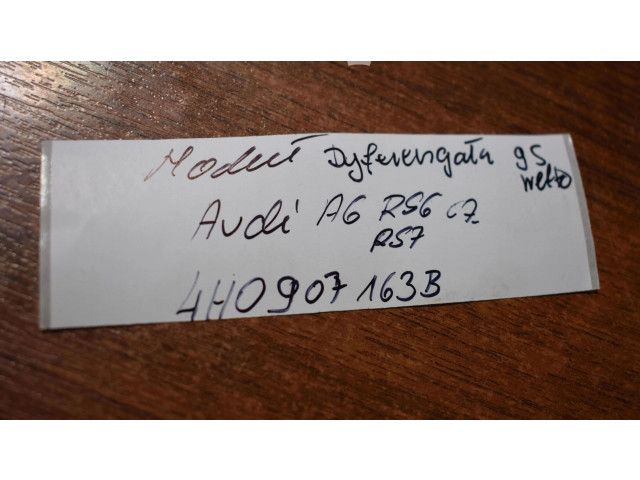 Moduł Dyferengału 95
netto
Audi A6 RS6 C7
RS7
4H0907163B